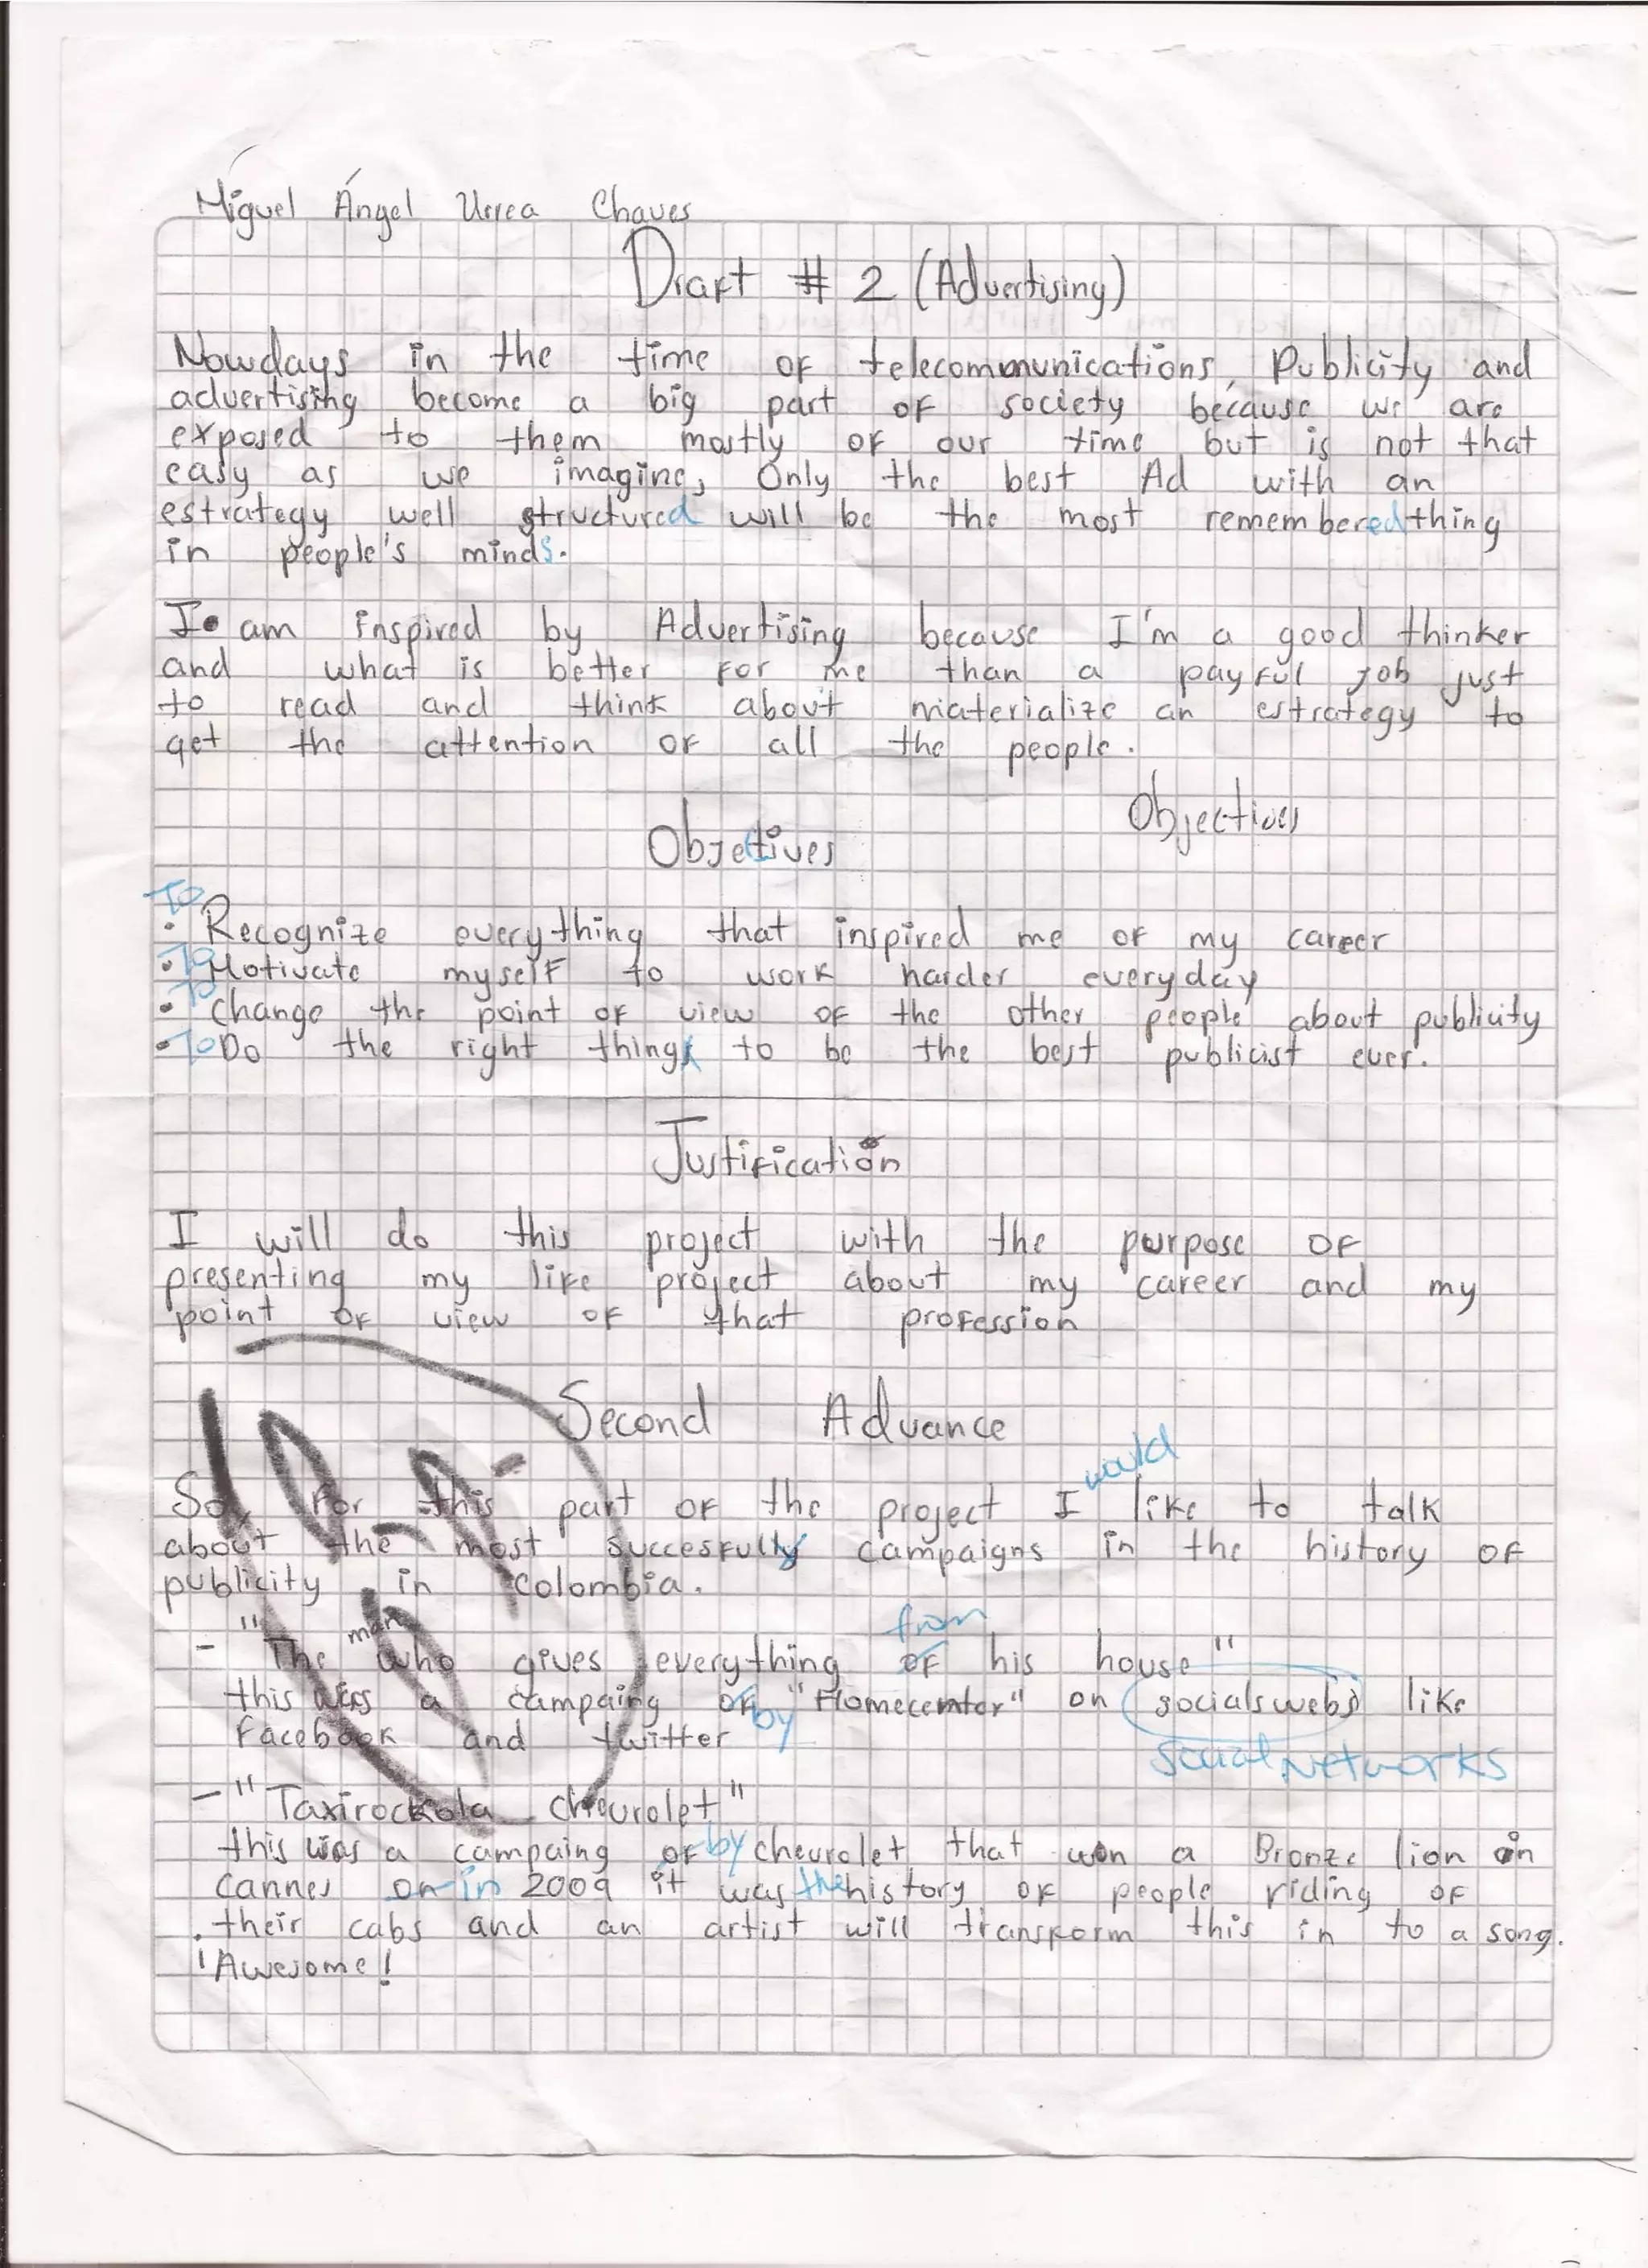 Miguel Ángel Urrea Chaves
Draft # 2 (Advertising)
Nowdays in the time of telecommunications, Publicity and
advertising become a big part of society because we are
exposed to them mostly of our time but is not that
easy as we imagine, Only the best Ad with an
estrategy well structured will be the most remembered thing
in people's minds.
I am inspired by Advertising because I'm a good thinker
and what is better for me than a payful job just
to read and think about materialize an estrategy to
get the attention of all the people.
Objectives
Objectives
To
• Recognize everything that inspired me of my career
• To Motivate myself to work harder everyday
• To Change the point of view of the other people about publicity
• To Do the right thing to be the best publicist ever.
Justification
I will do this project with the purpose of
presenting my life project about my career and my
point of view of that profession
Second Advance
would
So, for this part of the project I like to talk
about the most succesfully campaigns in the history of
publicity in Colombia.
from
man
- "The who gives everything of his house"
this was a campaing of "Homecenter" on socialswebs like
by
Facebook and twitter
Social Networks
- "Taxirockola chevrolet"
this was a campaing of by chevrolet that won a Bronze lion in
Cannes on in 2009 it was the history of people riding of
their cabs and an artist will transform this in to a song.
¡Awesome!